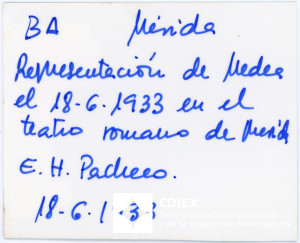 BA Mérida
Representación de Medea
el 18-6-1933 en el
teatro romano de Merida
E. H. Pacheco.
18-6-1933
CDIEX